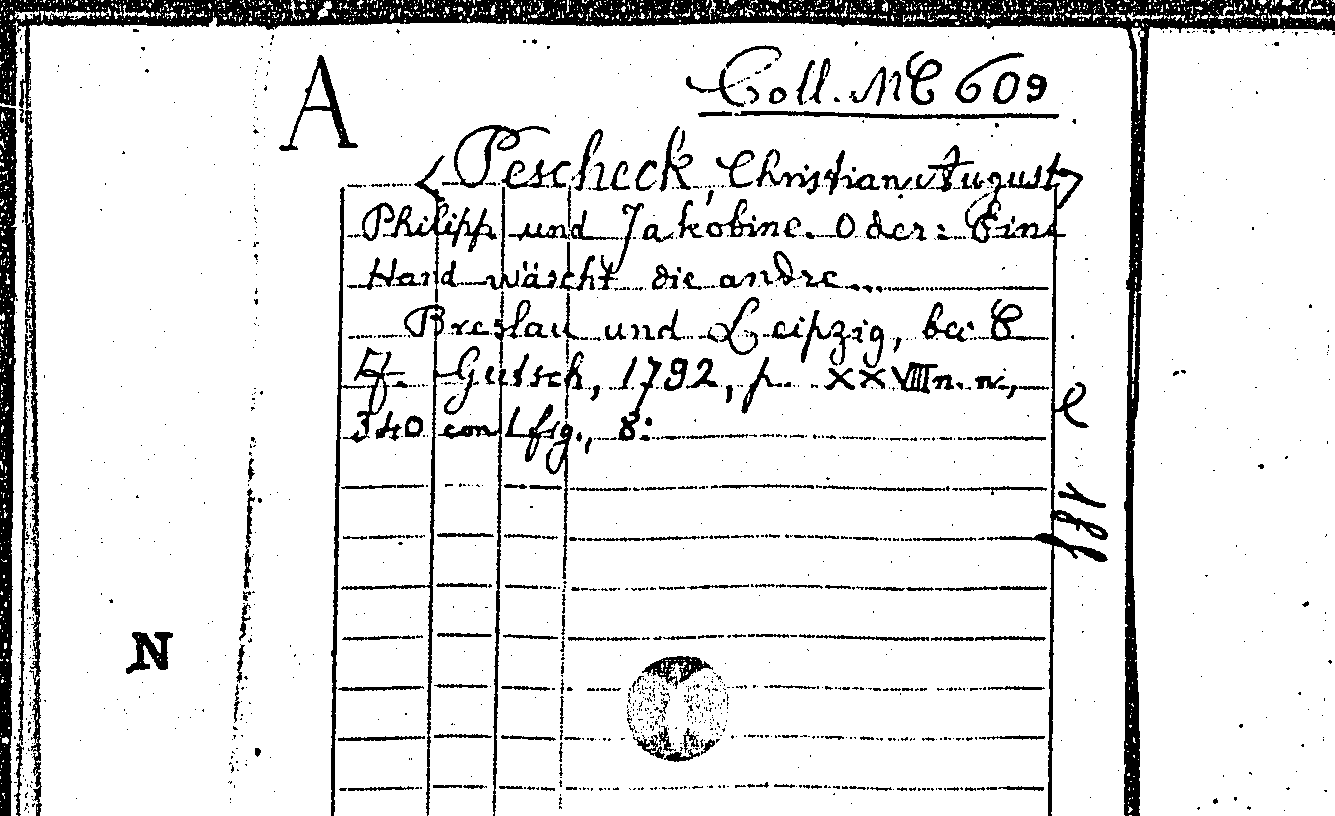 A
Coll. MC 609
<Pescheck, Christian August>
Philipp und Jakobine. Oder: Eine
Hand wäscht die andre...
Breslau und Leipzig, bei C
F. Gutsch, 1792, p. XXVIII n. n.,
340 con 1 fig., 8:
N